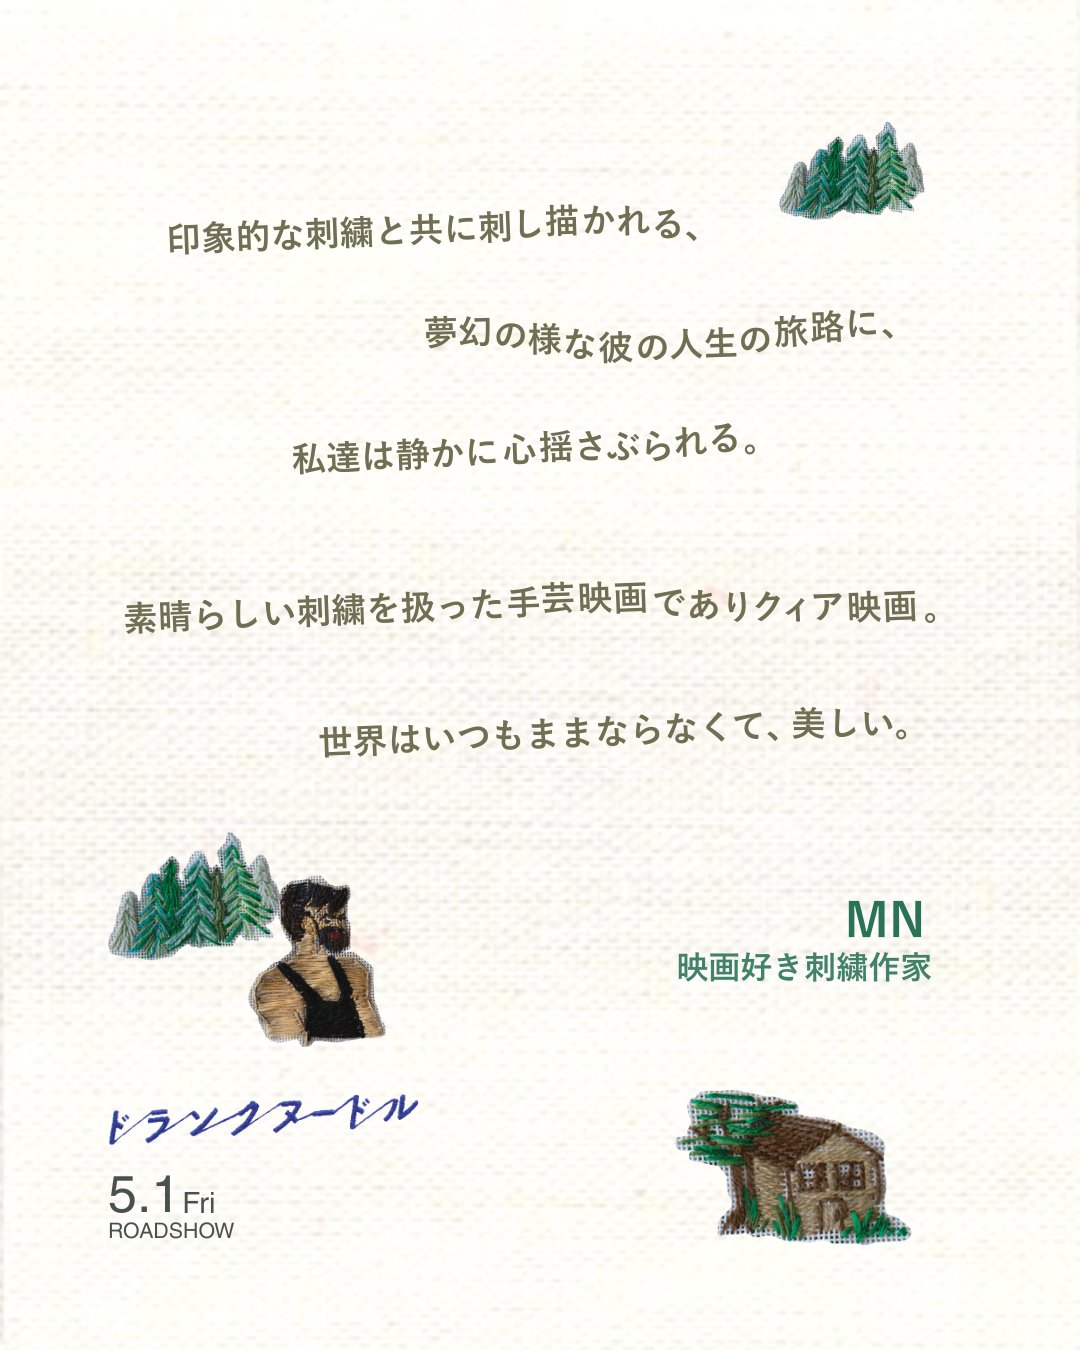 印象的な刺繍と共に刺し描かれる、
夢幻の様な彼の人生の旅路に、
私達は静かに心揺さぶられる。
素晴らしい刺繍を扱った手芸映画でありクィア映画。
世界はいつもままならなくて、美しい。
MN
映画好き刺繍作家
ドランクヌードル
5.1 Fri
ROADSHOW